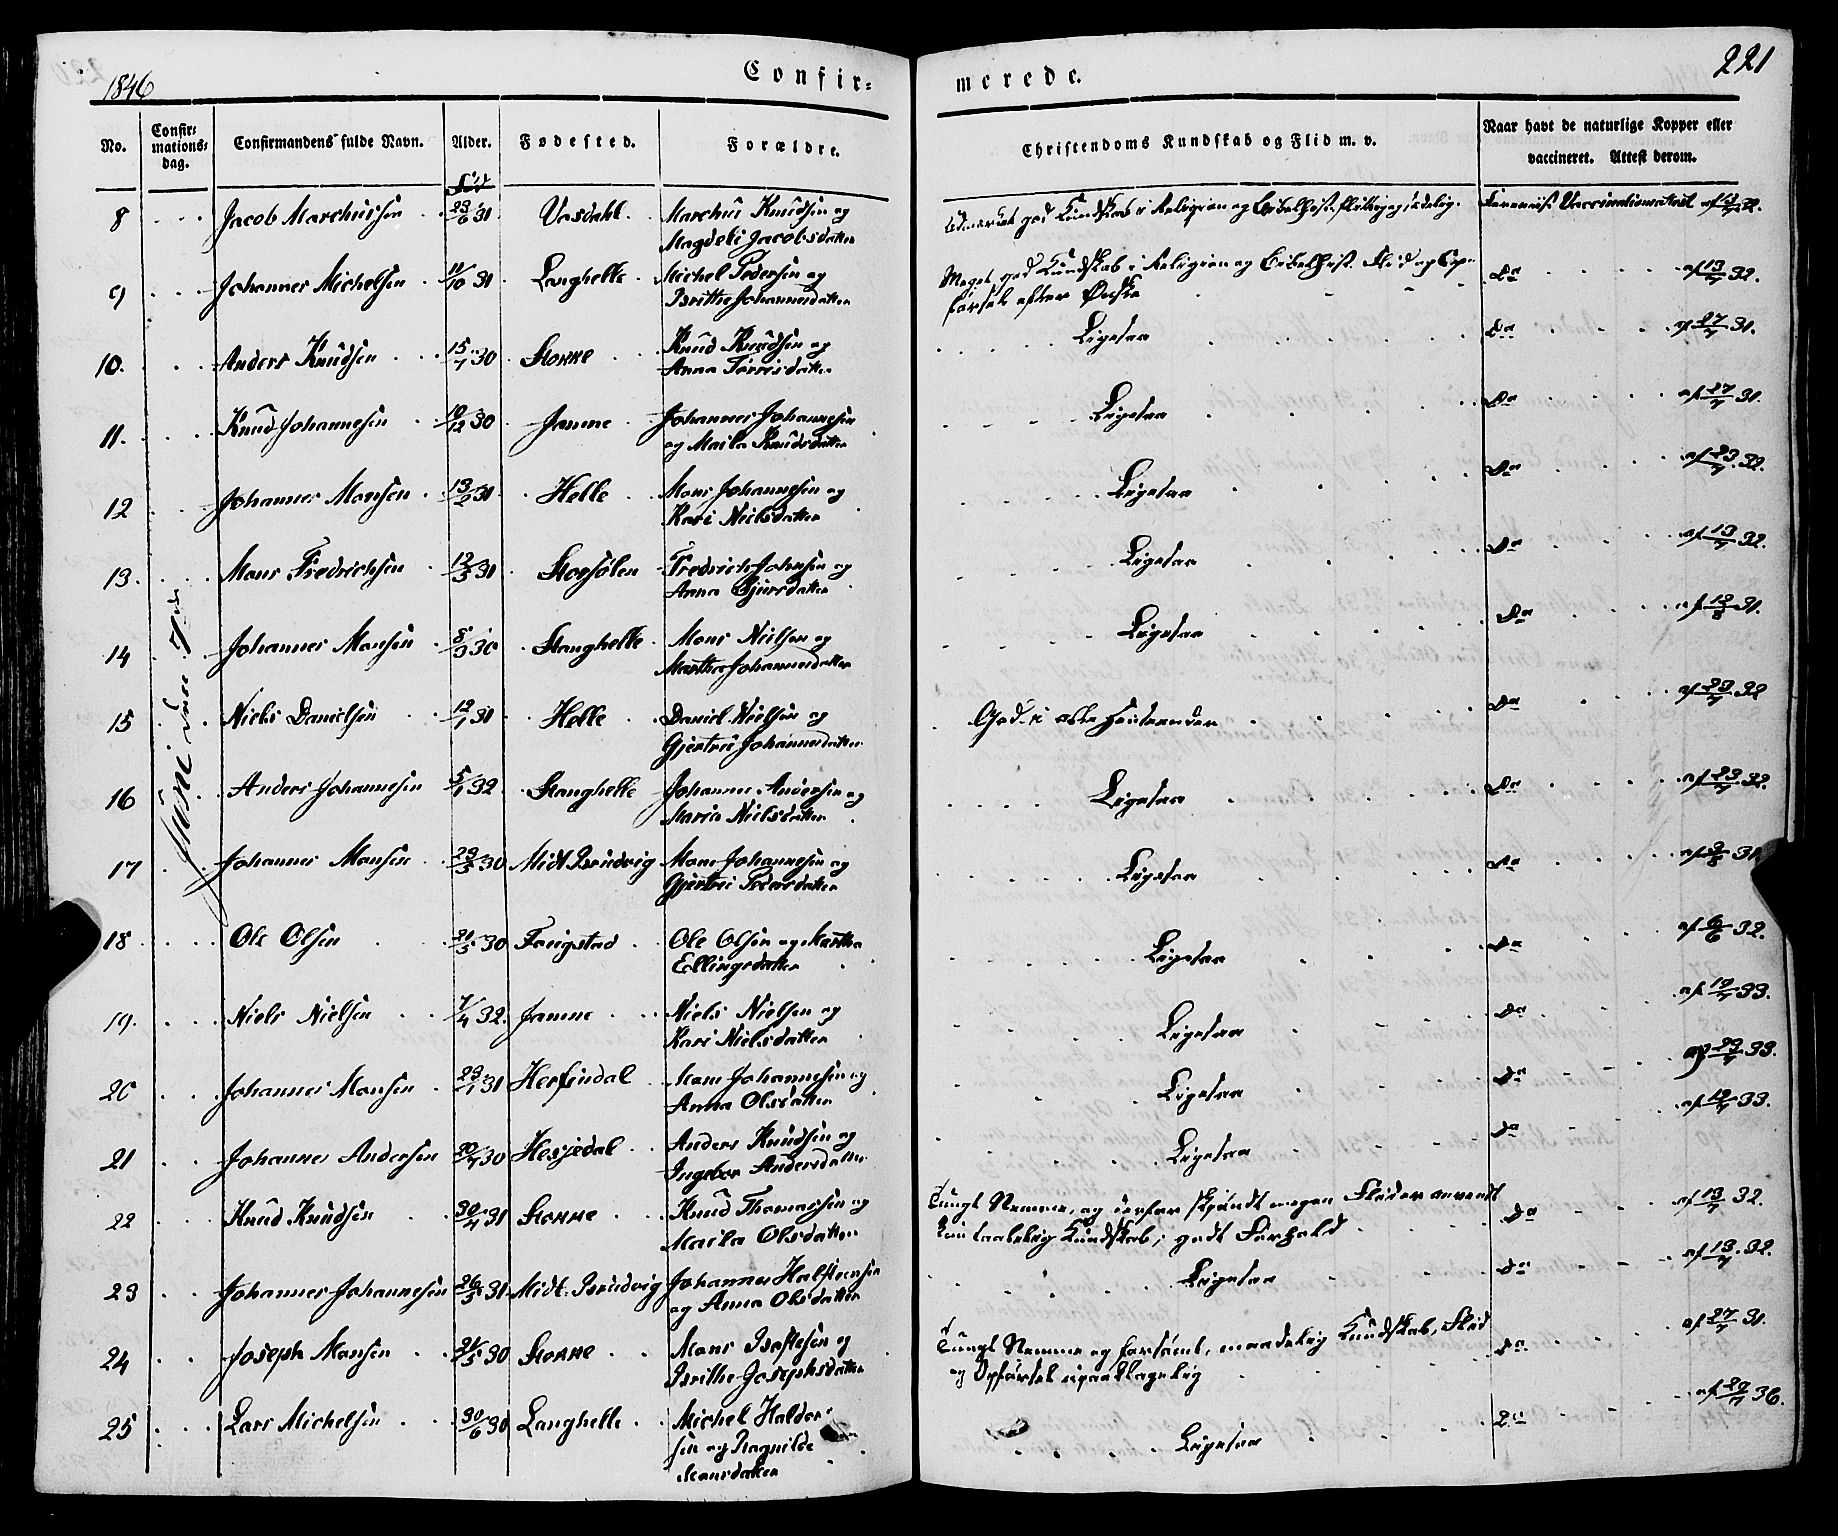 1846
Confir=
merede.
221
No.
Confir=
mations=
dag.
Confirmandens fulde Navn.
Alder.
Fødested.
Forældre.
Christendoms Kundskab og Flid m. v.
Naar havt de naturlige Kopper eller
vaccineret. Attest derom.
Juni den 7de
8 Jacob Marchussen 23/6 31 Vasdahl Marchus Knudsen og
Magdeli Jacobsdatter
Udmærket god Kundskab i Religion og Bibelhist. flittig og sædelig. Foreviist Vaccinationsattest af
9 Johannes Michelsen 11/10 31 Langhelle Michel Pedersen og
Brithe Johannesdatter
Meget god Kundskab i Religion og Bibelhist. Flid og Op-
førsel efter Ønske Do af 13/7 32.
10. Anders Knudsen 15/7 30 Storke Knud Knudsen og
Anna Torrisdatter
Ligesaa Do af 27/7 31.
11. Knud Johannesen 10/12 30 Jamne Johannes Johannesen
og Maila Knudsdatter
Ligesaa Do af 27/7 31.
12 Johannes Monsen 13/2 31 Helle Mons Johannesen og
Kari Nielsdatter
Ligesaa Do af 23/7 32.
13. Mons Fredrichsen 12/3 31 Storsølen Fredrich Johnsen og
Anna Gjursdatter
Ligesaa Do af 13/7 32.
14 Johannes Monsen 8/9 30 Stanghelle Mons Nielsen og
Martha Johannesdatter
Ligesaa Do af 12/8 31.
15 Niels Danielsen 12/1 31 Helle Daniel Nielsen og
Gjertrii Johannesdatter
God i alle Henseender Do af 23/7 32
16 Anders Johannesen 5/1 32 Stanghelle Johannes Andersen og
Maria Nielsdatter
Ligesaa Do af 23/7 32.
17 Johannes Monsen 29/3 30 Midt Bruvig Mons Johannesen og
Gjertrei Pedersdatter
Ligesaa Do af 31
18 Ole Olsen 21/5 30 Fougstad Ole Olsen og Martha
Ellingsdatter
Ligesaa Do af 6/6 32.
19. Niels Nielsen 7/4 32. Jamne Niels Nielsen og
Kari Nielsdatter
Ligesaa Do af 12/7 33.
20 Johannes Monsen 23/1 31 Herfindal Mons Johannesen og
Anna Olsdatter
Ligesaa Do af 23/7 33.
21 Johannes Andersen 20/7 30 Hesjedal Anders Knudsen og
Ingebor Andersdatter
Ligesaa Do af 12/7 33.
22 Knud Knudsen 30/4 31 Storke Knud Thomassen og
Maila Olsdatter
Tungt Nemme, og derfor skjøndt megen Flid er anvendt
kun taalelig Kundskab; godt Forhold Do af 13/7 32.
23 Johannes Johannesen 26/3 31 Midt Bruvig Johannes Halsteensen
og Anna Olsdatter
Ligesaa Do af 13/7 32.
24 Joseph Monsen 21/5 30 Storke Mons Brotlesen og
Brithe Josephsdatter
Tungt Nemme og forsømt, maadelig Kundskab, Flid
og Opførsel upaaklagelig Do af 27/7 31.
25 Lars Michelsen 30/6 30 Langhelle Michel Haldor-
sen og Ragnilde
Monsdatter
Ligesaa Do af 36.